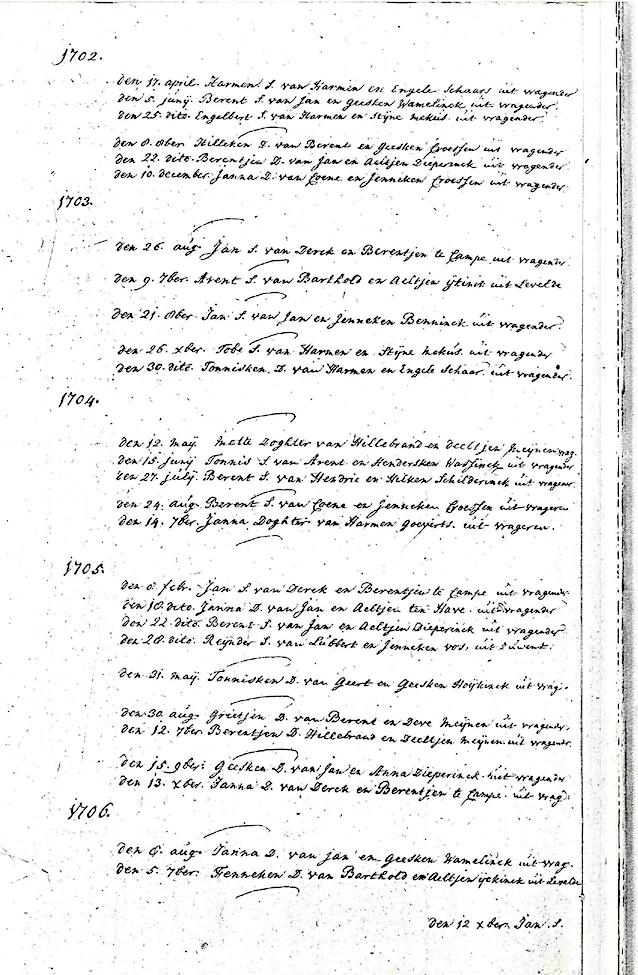 1702.
den 17. april. Harmen S. van Harmen en Engele Schaars uit vragender
den 5. junij. Berent S. van Jan en Geesken Wamelinck uit vragender.
den 25. dito. Engelbert S. van Harmen en Stijne mekus. uit vragender.
den 8. 8ber Hilleken D. van Berent en Geesken Croessen uit vragender
den 22. dito. Berentjen D. van Jan en Aeltjen Dieperinck uit vragender
den 10. december. Janna D. van Coene en Jenneken Croessen uit vragender
1703.
den 26. aug. Jan S. van Derck en Berentjen te Campe uit vragender.
den 9. 7ber. Arent S. van Barthold en Aeltjen ijkinck uit Levelde
den 21. 8ber. Jan S. van Jan en Jenneken Benninck uit vragender.
den 26. xber. Tobe S. van Harmen en Stijne mekus. uit vragender
den 30. dito. Tonnisken. D. van Harmen en Engele Schaar. uit vragender.
1704.
den 12. maij mette Doghter van Hillebrand en Deeltjen meijnen vrag.
den 15. junij Tonnis S. van Arent en Hendersken Wassinck uit vragender
den 27. julij Berent S. van Hendric en Hilken Schilderinck uit vragener
den 24. aug. Berent S. van Coene en Jenneken Croessen uit vrageren
den 14. 7ber. Janna Doghter van Harmen goeyerts. uit vrageren.
1705.
den 8. febr. Jan S. van Derck en Berentjen te Campe uit vragender
den 18. dito. Janna D. van Jan en Aeltjen ten Have. uit vragender
den 22. dito. Berent S. van Jan en Aeltjen Dieperinck uit vragender
den 28. dito. Reijnder S. van Lubbert en Jenneken vos, uit
den 31. maij. Tonnisken D. van Geert en Geesken Hoijkinck uit vrag.
den 30. aug. Grietjen D. van Berent en Deve meijnen uit vragender.
den 12. 7ber. Berentjen D. Hillebrand en Deeltjen meijnen. uit vragender.
den 15. 9ber: Geesken D. van Jan en Anna Dieperinck. uit vragender
den 13. xber. Janna D. van Derck en Berentjen te Campe. uit vrag:
1706.
den 8. aug. Janna D. van jan en Geesken Wamelinck uit vrag.
den 5. 7ber. Henneken D. van Barthold en Aeltjen ijckinck uit Levelde
den 12 xber. Jan. S.